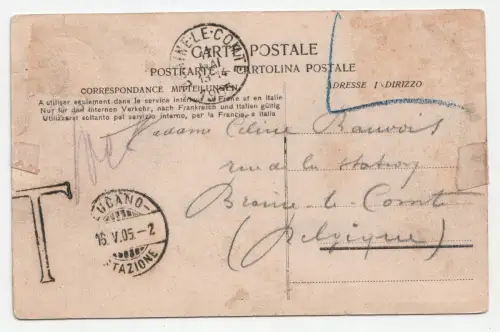 CARTE POSTALE
POSTKARTE CARTOLINA POSTALE
CORRESPONDANCE MITTEILUNGEN
ADRESSE INDIRIZZO
A utiliser seulement dans le service interne de la Suisse et en Italie
Nur für den internen Verkehr, nach Frankreich und Italien gültig
Utilizzarsi soltanto pel servizio interno, per la Francia, e Italia
BRAINE-LE-COMTE
MAI
Madame Céline
rue de la Station
Braine le Comte
(Belgique)
T
LUGANO-
16.V.05.-2
STAZIONE